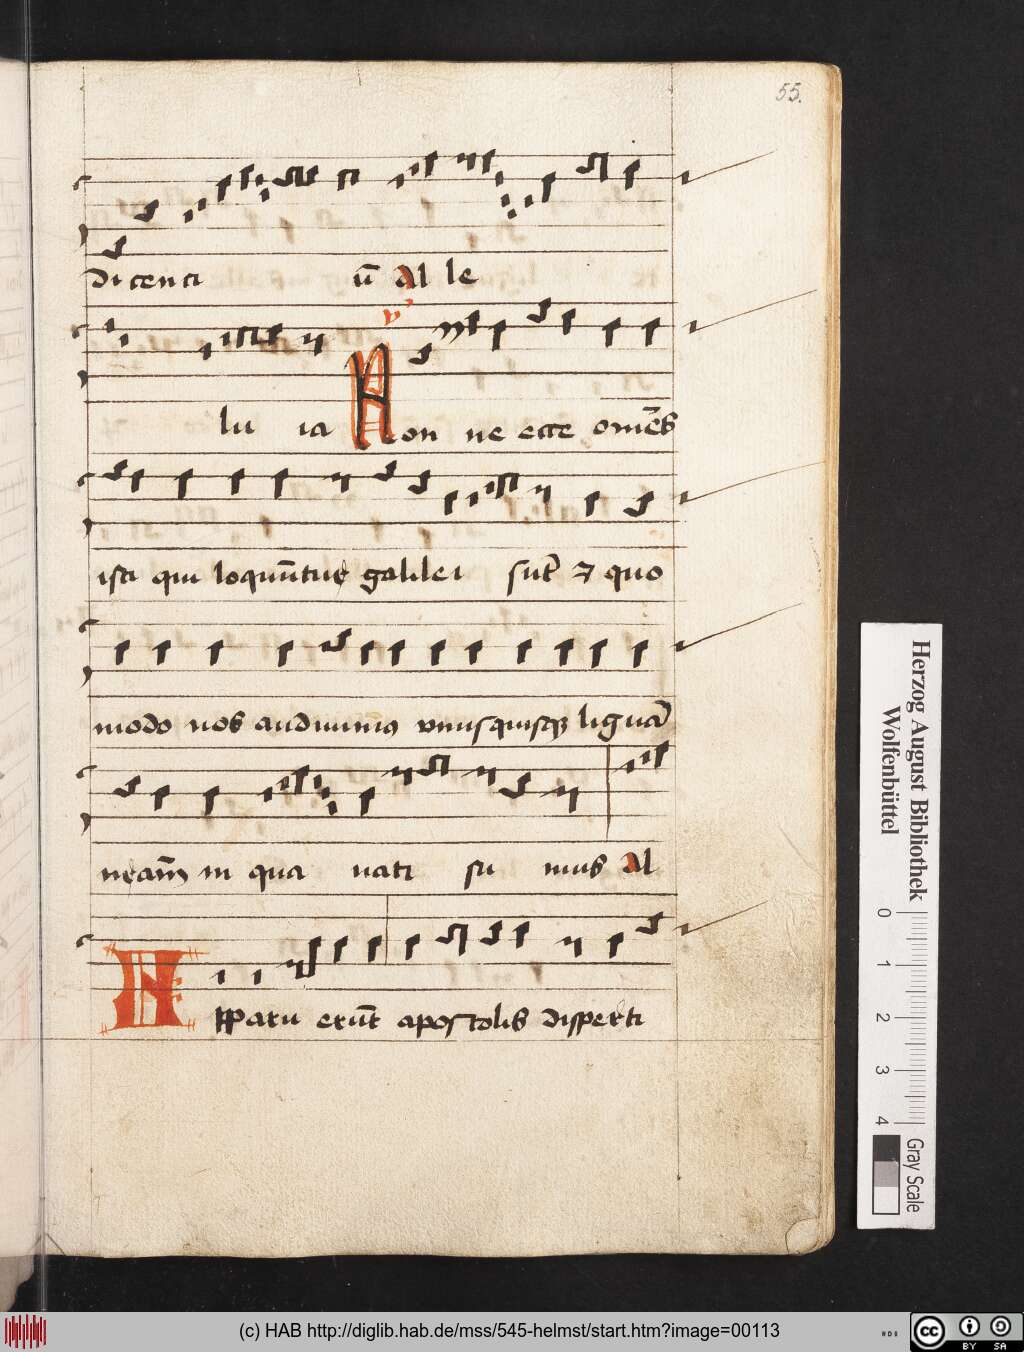 55.
dicenti ū Al le
v
lu ia Non ne ecce om̄es
isti qui loquūtur galilei sūt ⁊ quo
modo nos audiuimus vnusquisqꝫ liguā
nr̄am in qua nati su mus Al
Apparu erūt apostolis disperti
Herzog August Bibliothek
Wolfenbüttel
0 1 2 3 4
Gray Scale
(c) HAB http://diglib.hab.de/mss/545-helmst/start.htm?image=00113
cc BY SA